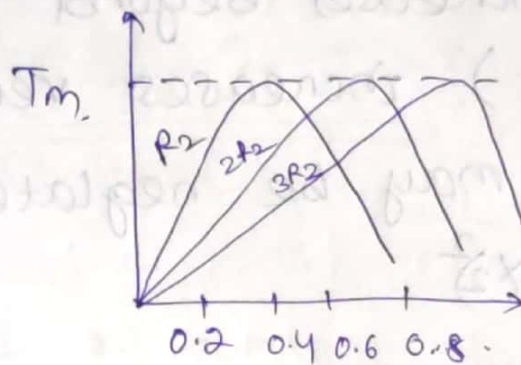 Tm.
R2
2R2
3R2
0.2 0.4 0.6 0.8.